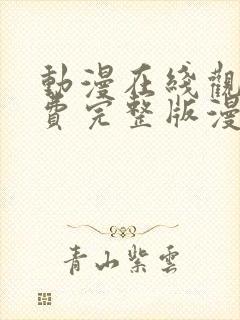 動漫在綫觀
費完整版漫
青山紫雲